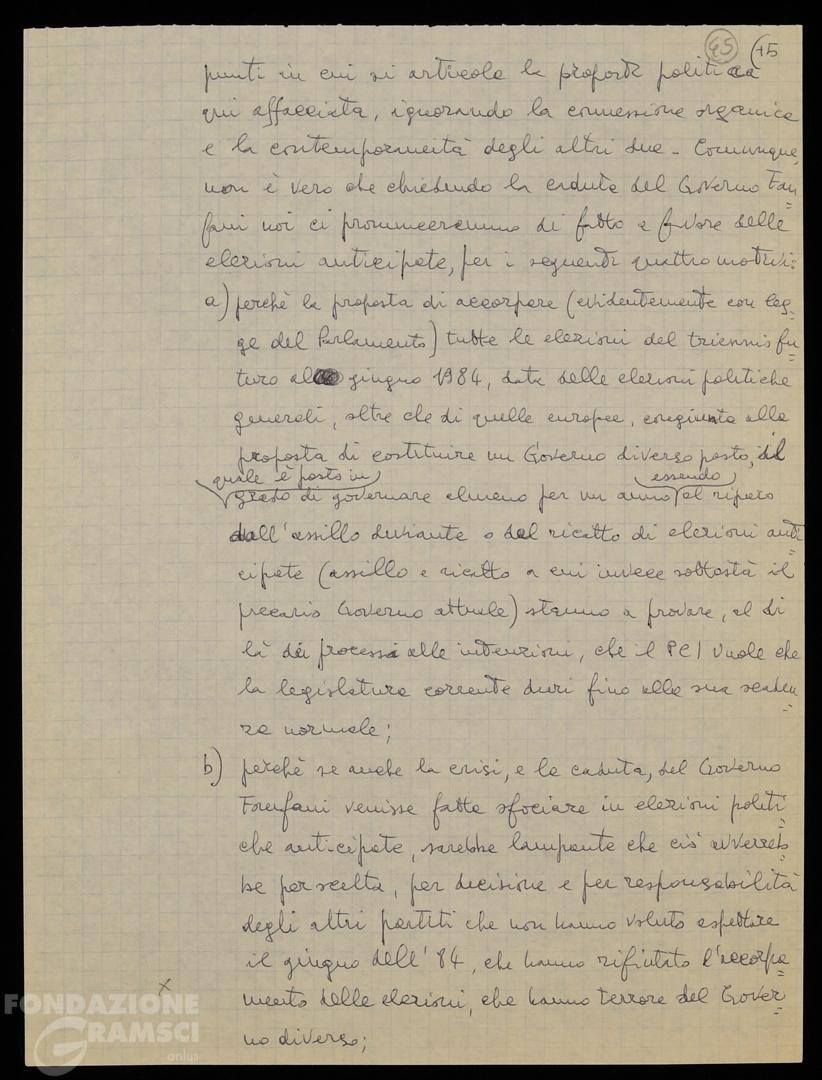 45 (15
punti in cui si articola la proposta politica
qui affacciata, ignorando la connessione organica
e la contemporaneità degli altri due - Comunque,
non è vero che chiedendo la caduta del Governo Fan=
fani noi ci pronunceremmo di fatto a favore delle
elezioni anticipate, per i seguenti quattro motivi:
a) perchè la proposta di accorpare (evidentemente con leg=
ge del Parlamento) tutte le elezioni del triennio fu=
turo al giugno 1984, data delle elezioni politiche
generali, oltre che di quelle europee, congiunta alla
proposta di costituire un Governo diverso posto, il
quale è posto in essendo
grado di governare almeno per un anno al riparo
dall'assillo duviante o dal ricatto di elezioni anti=
cipate (assillo e ricatto a cui invece sottostà il
precario Governo attuale) stanno a provare, al di
là dei processi alle intenzioni, che il PCI vuole che
la legislatura corrente duri fino alla sua scaden=
za normale;
b) perchè se anche la crisi, e la caduta, del Governo
Fanfani venisse fatta sfociare in elezioni politi=
che anticipate, sarebbe lampante che ciò avverreb=
be per scelta, per decisione e per responsabilità
degli altri partiti che non hanno voluto aspettare
il giugno dell'84, che hanno rifiutato l'accorpa=
mento delle elezioni, che hanno terrore del Gover=
no diverso;
x
FONDAZIONE
GRAMSCI
onlus